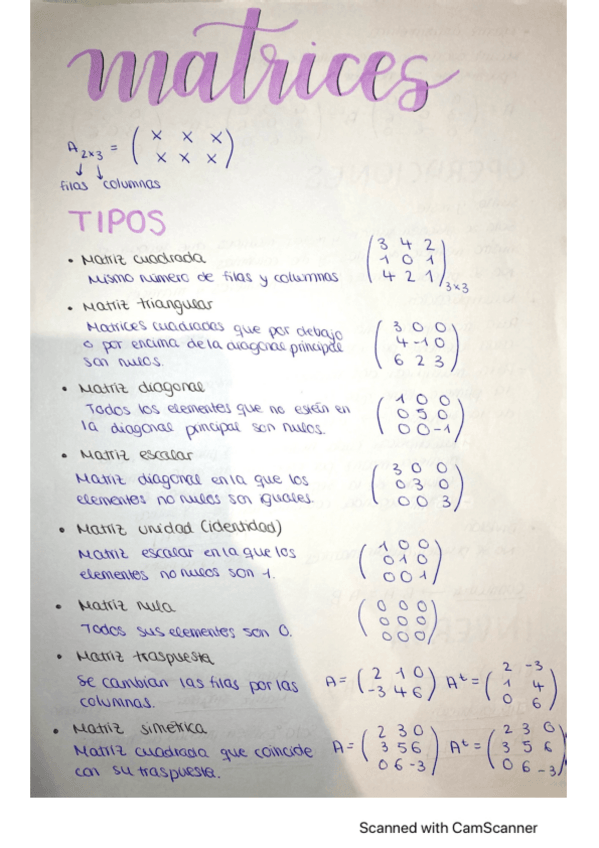 matrices
A 2x3 = ( x x x )
( x x x )
filas columnas
TIPOS
• Matriz cuadrada
Mismo número de filas y columnas
( 3 4 2 )
( 1 0 1 )
( 4 2 1 ) 3x3
• Matriz triangular
Matrices cuadradas que por debajo
o por encima de la diagonal principal
son nulos.
( 3 0 0 )
( 4 -1 0 )
( 6 2 3 )
• Matriz diagonal
Todos los elementos que no estén en
la diagonal principal son nulos.
( 1 0 0 )
( 0 5 0 )
( 0 0 -1 )
• Matriz escalar
Matriz diagonal en la que los
elementos no nulos son iguales.
( 3 0 0 )
( 0 3 0 )
( 0 0 3 )
• Matriz unidad (identidad)
Matriz escalar en la que los
elementos no nulos son 1.
( 1 0 0 )
( 0 1 0 )
( 0 0 1 )
• Matriz nula
Todos sus elementos son 0.
( 0 0 0 )
( 0 0 0 )
( 0 0 0 )
• Matriz traspuesta
Se cambian las filas por las
columnas.
A = ( 2 1 0 )
( -3 4 6 )
Aᵗ = ( 2 -3 )
( 1 4 )
( 0 6 )
• Matriz simétrica
Matriz cuadrada que coincide
con su traspuesta.
A = ( 2 3 0 )
( 3 5 6 )
( 0 6 -3 )
Aᵗ = ( 2 3 0 )
( 3 5 6 )
( 0 6 -3 )
Scanned with CamScanner